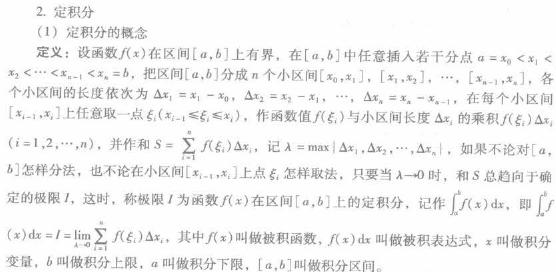 2. 定积分
（1）定积分的概念
定义：设函数 f(x) 在区间 [a, b] 上有界，在 [a, b] 中任意插入若干分点 a = x₀ < x₁ <
x₂ < ⋯ < xₙ₋₁ < xₙ = b，把区间 [a, b] 分成 n 个小区间 [x₀, x₁]，[x₁, x₂]，⋯，[xₙ₋₁, xₙ]，各
个小区间的长度依次为 Δx₁ = x₁ − x₀，Δx₂ = x₂ − x₁，⋯，Δxₙ = xₙ − xₙ₋₁，在每个小区间
[xᵢ₋₁, xᵢ] 上任意取一点 ξᵢ(xᵢ₋₁ ≤ ξᵢ ≤ xᵢ)，作函数值 f(ξᵢ) 与小区间长度 Δxᵢ 的乘积 f(ξᵢ)Δxᵢ
(i = 1,2,⋯,n)，并作和 S = ∑ᵢ₌₁ⁿ f(ξᵢ)Δxᵢ，记 λ = max{Δx₁, Δx₂, ⋯, Δxₙ}，如果不论对 [a,
b] 怎样分法，也不论在小区间 [xᵢ₋₁, xᵢ] 上点 ξᵢ 怎样取法，只要当 λ→0 时，和 S 总趋向于确
定的极限 I，这时，称极限 I 为函数 f(x) 在区间 [a, b] 上的定积分，记作 ∫ₐᵇ f(x)dx，即 ∫ₐᵇ f
(x)dx = I = lim_{λ→0} ∑ᵢ₌₁ⁿ f(ξᵢ)Δxᵢ，其中 f(x) 叫做被积函数，f(x)dx 叫做被积表达式，x 叫做积分
变量，b 叫做积分上限，a 叫做积分下限，[a, b] 叫做积分区间。